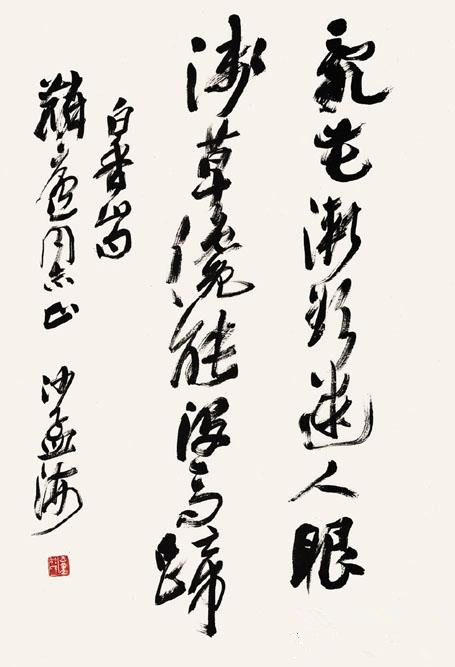 亂花漸欲迷人眼
淺草纔能沒馬蹄
白香山句
同志正 沙孟海